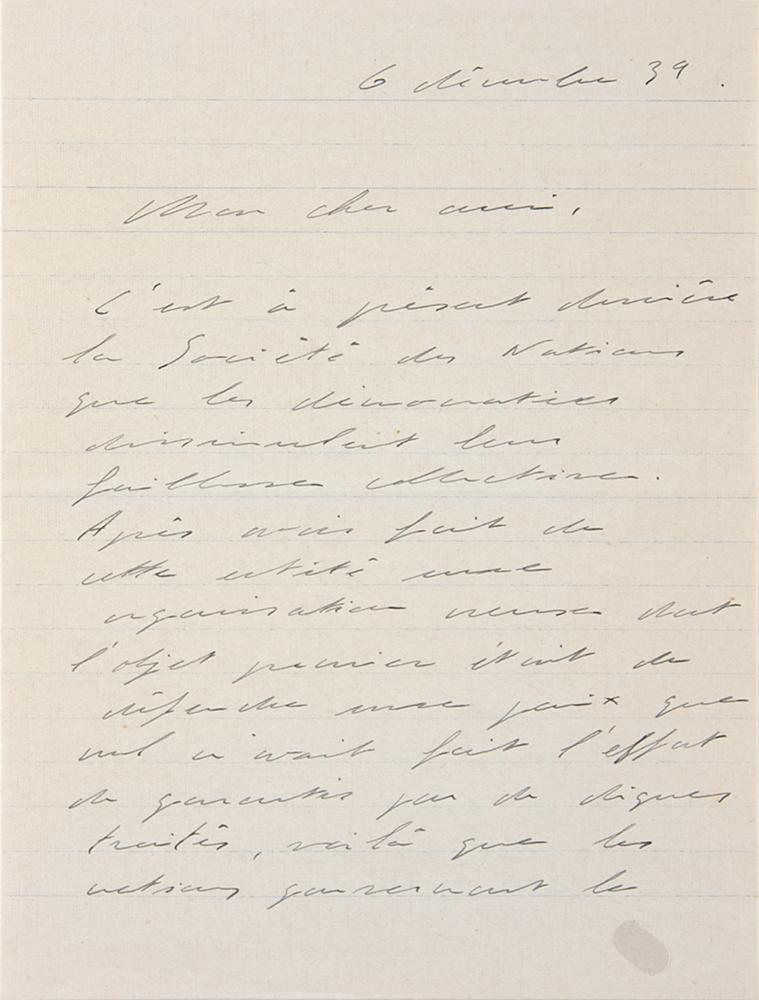 6 décembre 39.
Mon cher ami,
C'est à présent derrière
la Société des Nations
que les démocraties
dissimulent leur
faiblesse collective.
Après avoir fait de
cette entité une
organisation creuse dont
l'objet premier était de
défendre une paix que
nul n'avait fait l'effort
de garantir par de dignes
traités, voilà que les
nations gouvernant le